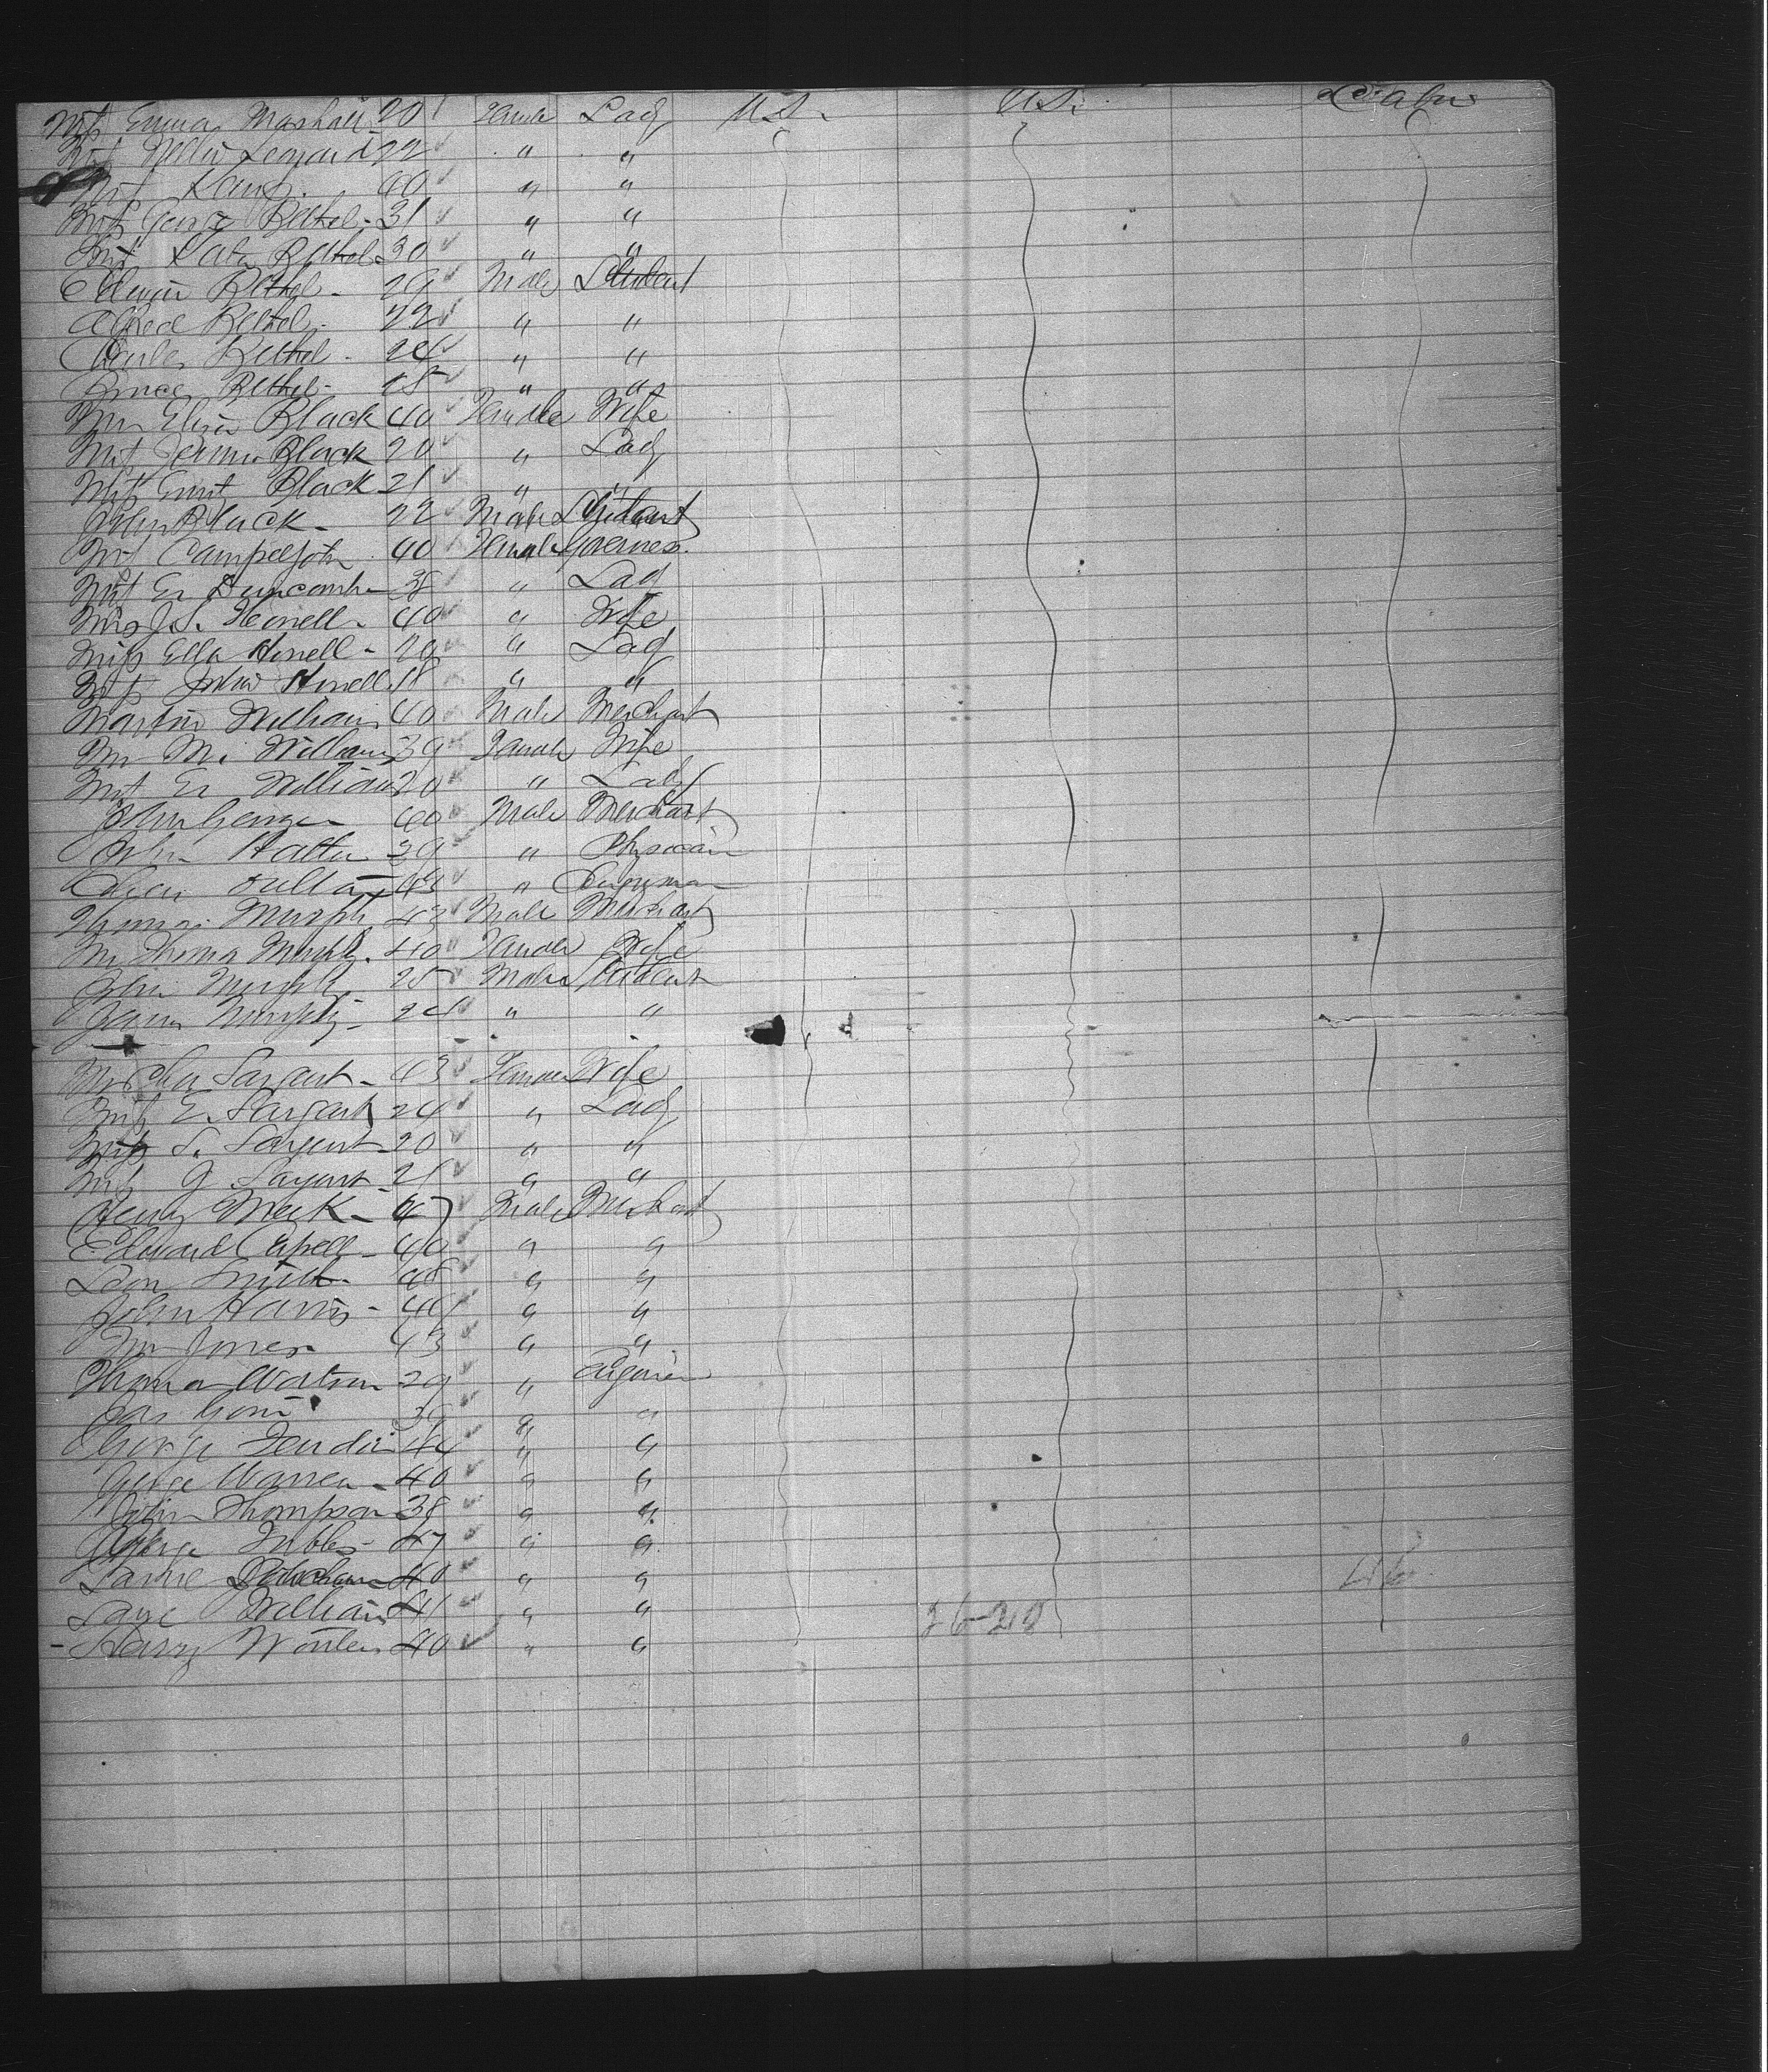 Miss Emma Mashall 20 Female Lady U.S. U.S. Cabin
Miss Nellie Leonard 22 " "
Miss Kaus 40 " "
Miss George Bethel - 31 " "
Miss Kate Bethel 30 " "
Edwin Bethel - 29 Male Student
Alfred Bethel - 22 " "
Charles Bethel - 24 " "
Bruce Bethel - 18 " "
Mrs Eliza Black 40 Female Wife
Miss Jennie Black 20 " Lady
Miss Black 21 " "
John Black - 22 Male Student
Miss 40 Female Governess
Miss E. Duncombe 38 " Lady
Mrs J.S. Howell - 40 " Wife
Miss Ella Howell - 20 " Lady
Miss Howell 18 " "
Martin William 40 Male Merchant
Mrs M. Williams 39 Female Wife
Miss E. William 20 " Lady
John George 40 Male Merchant
John 39 " Physician
43 " Clergyman
Thomas Murphy 43 Male Merchant
Mrs Thomas Murphy. 40 Female Wife
John Murphy 25 Male Student
James Murphy - 24 " "
Mrs Chas Sargent - 43 Female Wife
Miss E. Sargent 24 " Lady
Miss S. Sargent 20 " "
Miss G Sargent - 21 " "
Henry Meek - 47 Male Merchant
Edward Capell - 40 " "
Leon Smith - 48 " "
John Harris - 46 " "
Wm Jones 43 " "
Thomas Watson 29 "
Jas 39 " "
George 44 " "
George Warren - 40 " "
John Thompson 38 " "
George 47 " "
40 " " 46
William 41 " " 26-20
- Harry 40 " "